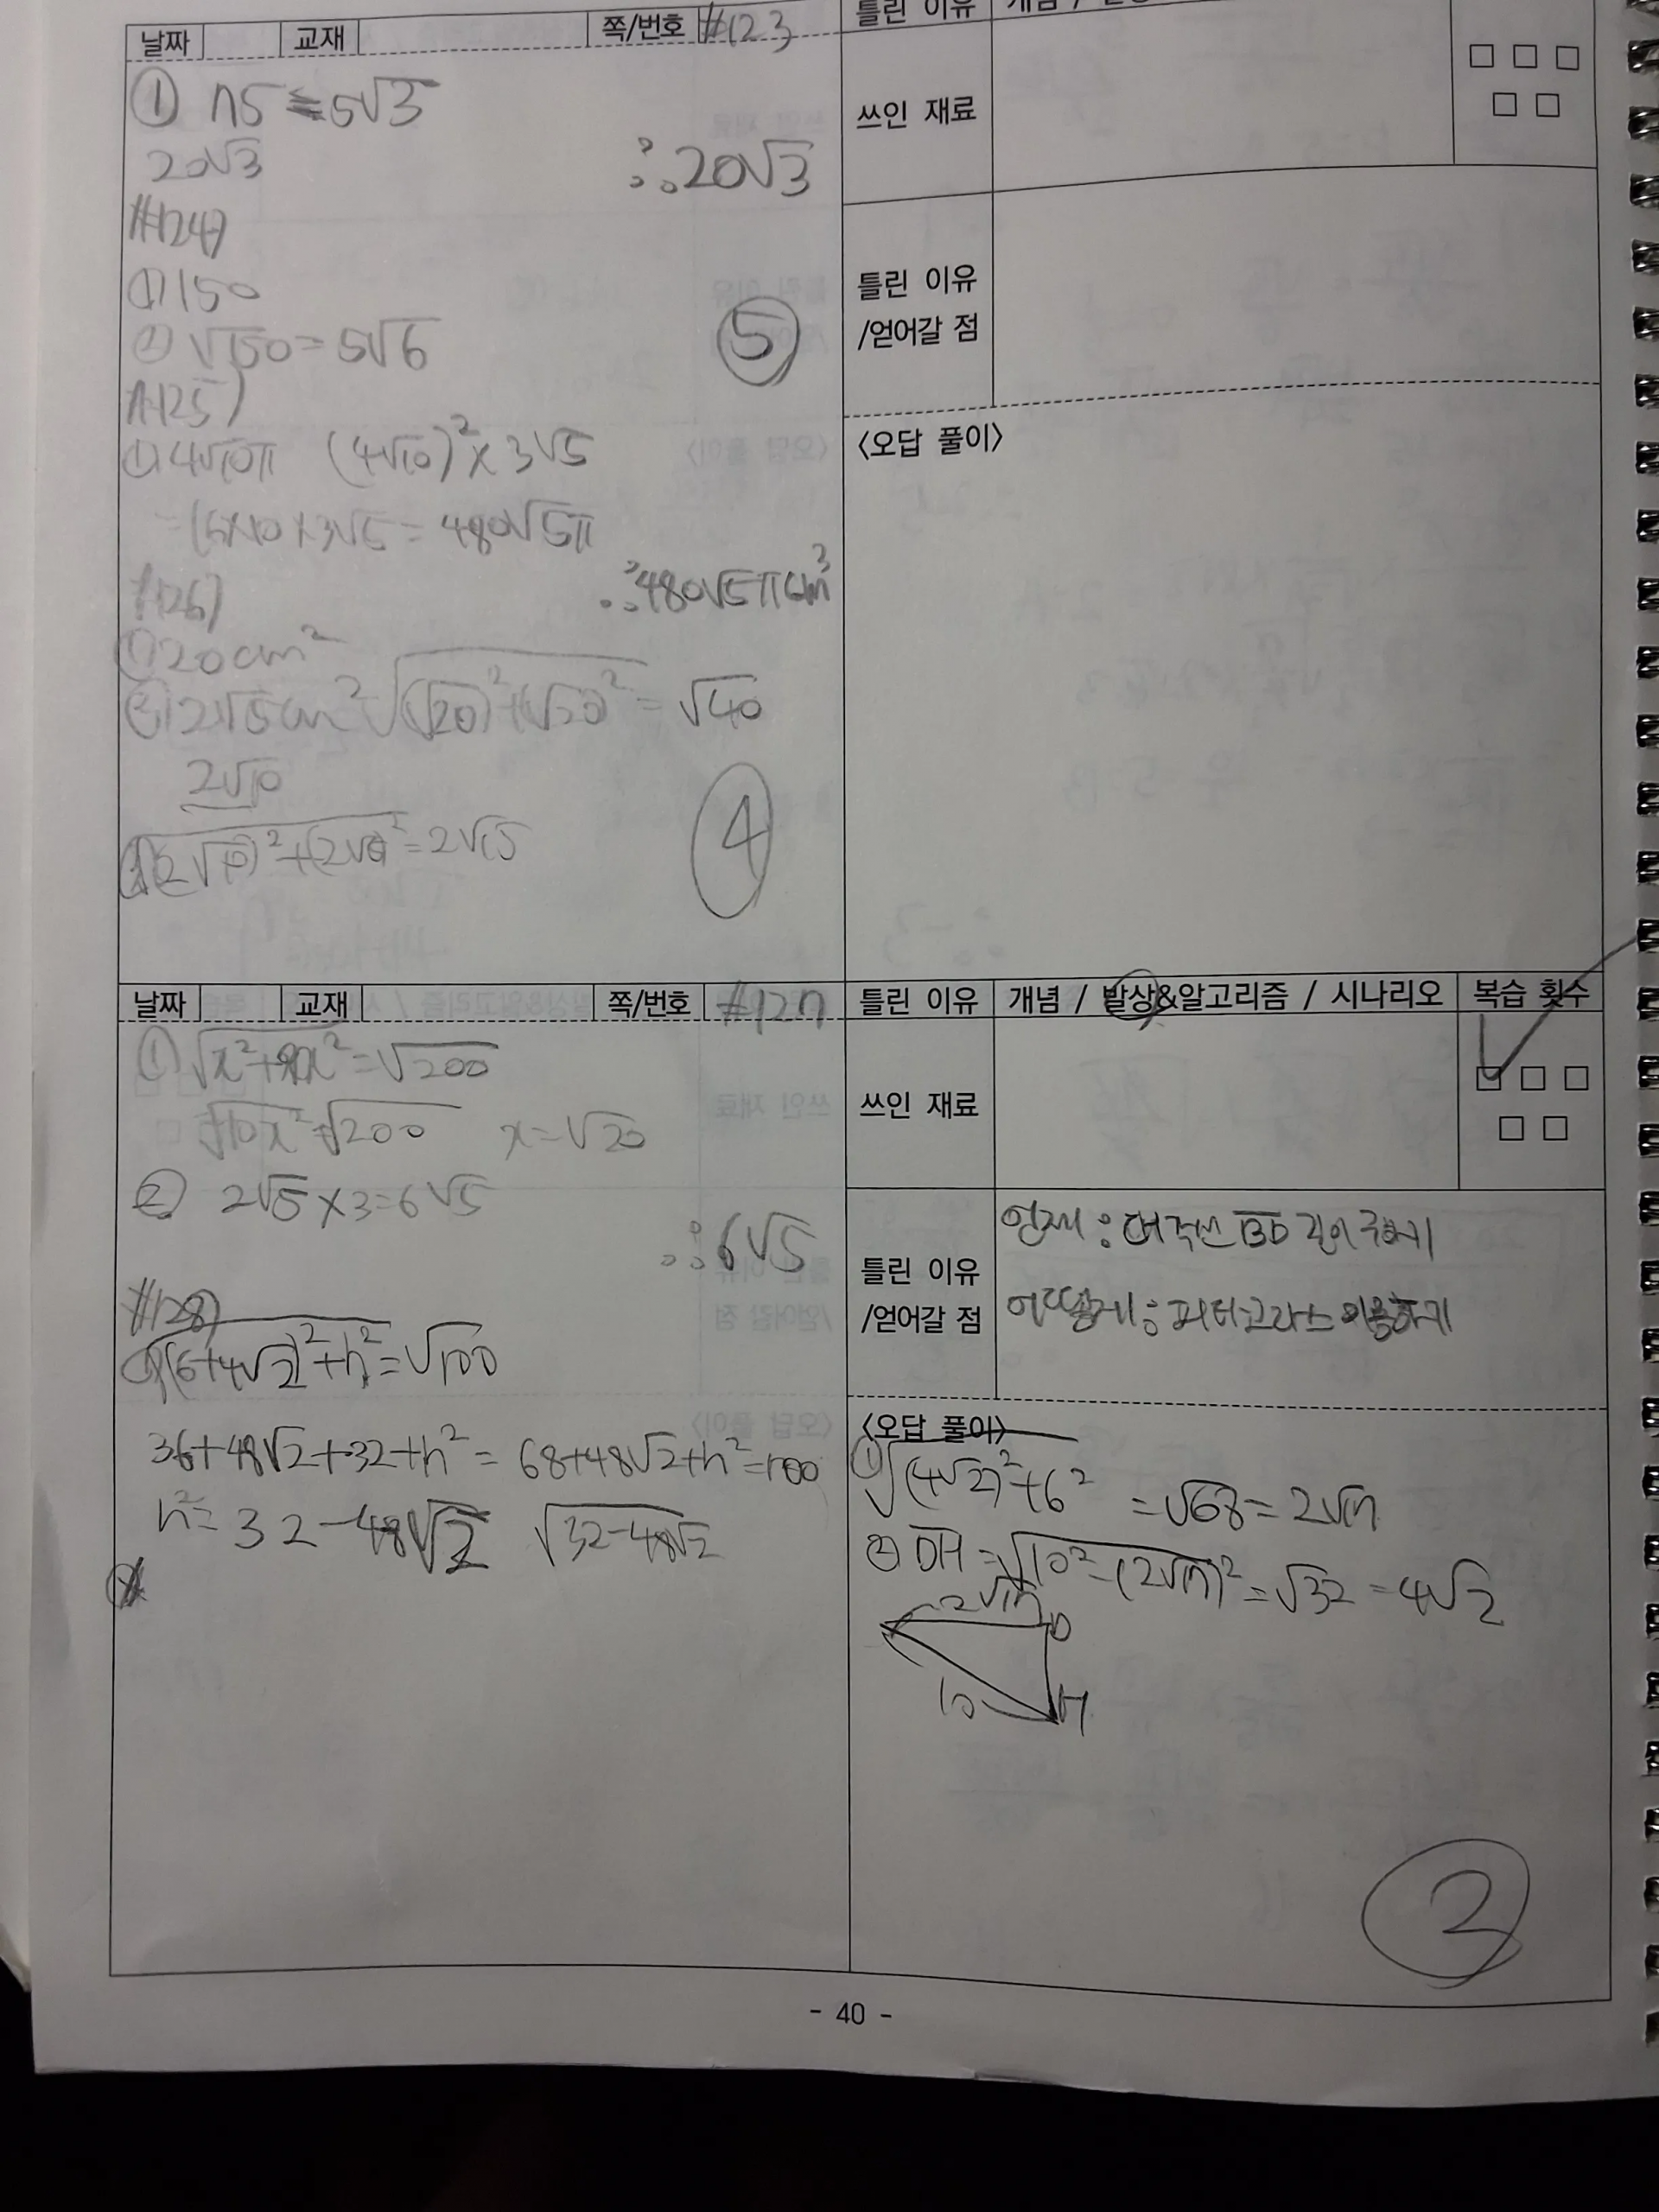 날짜 교재 쪽/번호 #123
① 75 = 5√3
20√3
∴ 20√3
#124)
① 150
② √150 = 5√6
⑤
#125)
① 4√10π (4√10)² × 3√5
= 16×10×3√5 = 480√5π
∴ 480√5π cm³
#126)
① 20cm²
② 2√5cm² √(√20)²+(√20)² = √40
2√10
√(2√10)²+(2√5)² = 2√15
④
틀린 이유
쓰인 재료
틀린 이유
/얻어갈 점
<오답 풀이>
날짜 교재 쪽/번호 #127
① √x²+9x² = √200
√10x² = √200 x = √20
② 2√5 × 3 = 6√5
∴ 6√5
#128)
① √(6+4√2)²+h² = √100
36+48√2+32+h² = 68+48√2+h² = 100
h² = 32-48√2 √32-48√2
틀린 이유 개념 / 발상&알고리즘 / 시나리오 복습 횟수
쓰인 재료
틀린 이유
/얻어갈 점
언제 : 대각선 BD 길이 구하기
어떻게 : 피타고라스 이용하기
<오답 풀이>
① √(4√2)²+6² = √68 = 2√17
② DH = √10²-(2√17)² = √32 = 4√2
2√17 D
10 H
②
- 40 -